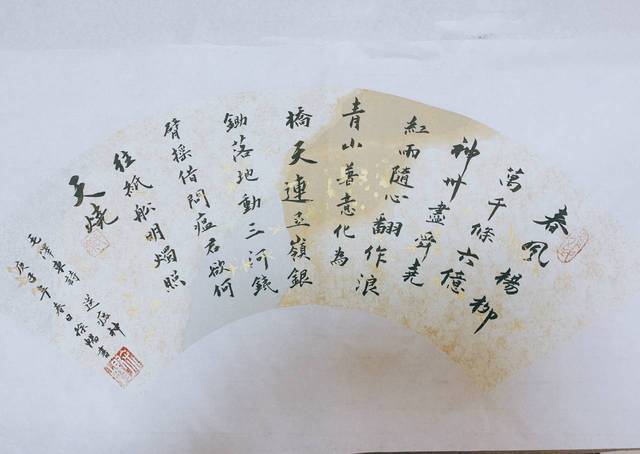 春風楊柳
萬千條六億
神州盡舜堯
紅雨隨心翻作浪
青山著意化為
橋天連五嶺銀
鋤落地動三河鐵
臂搖借問瘟君欲何
往紙船明燭照
天燒
毛澤東詩送瘟神
庚子年春日徐暢書